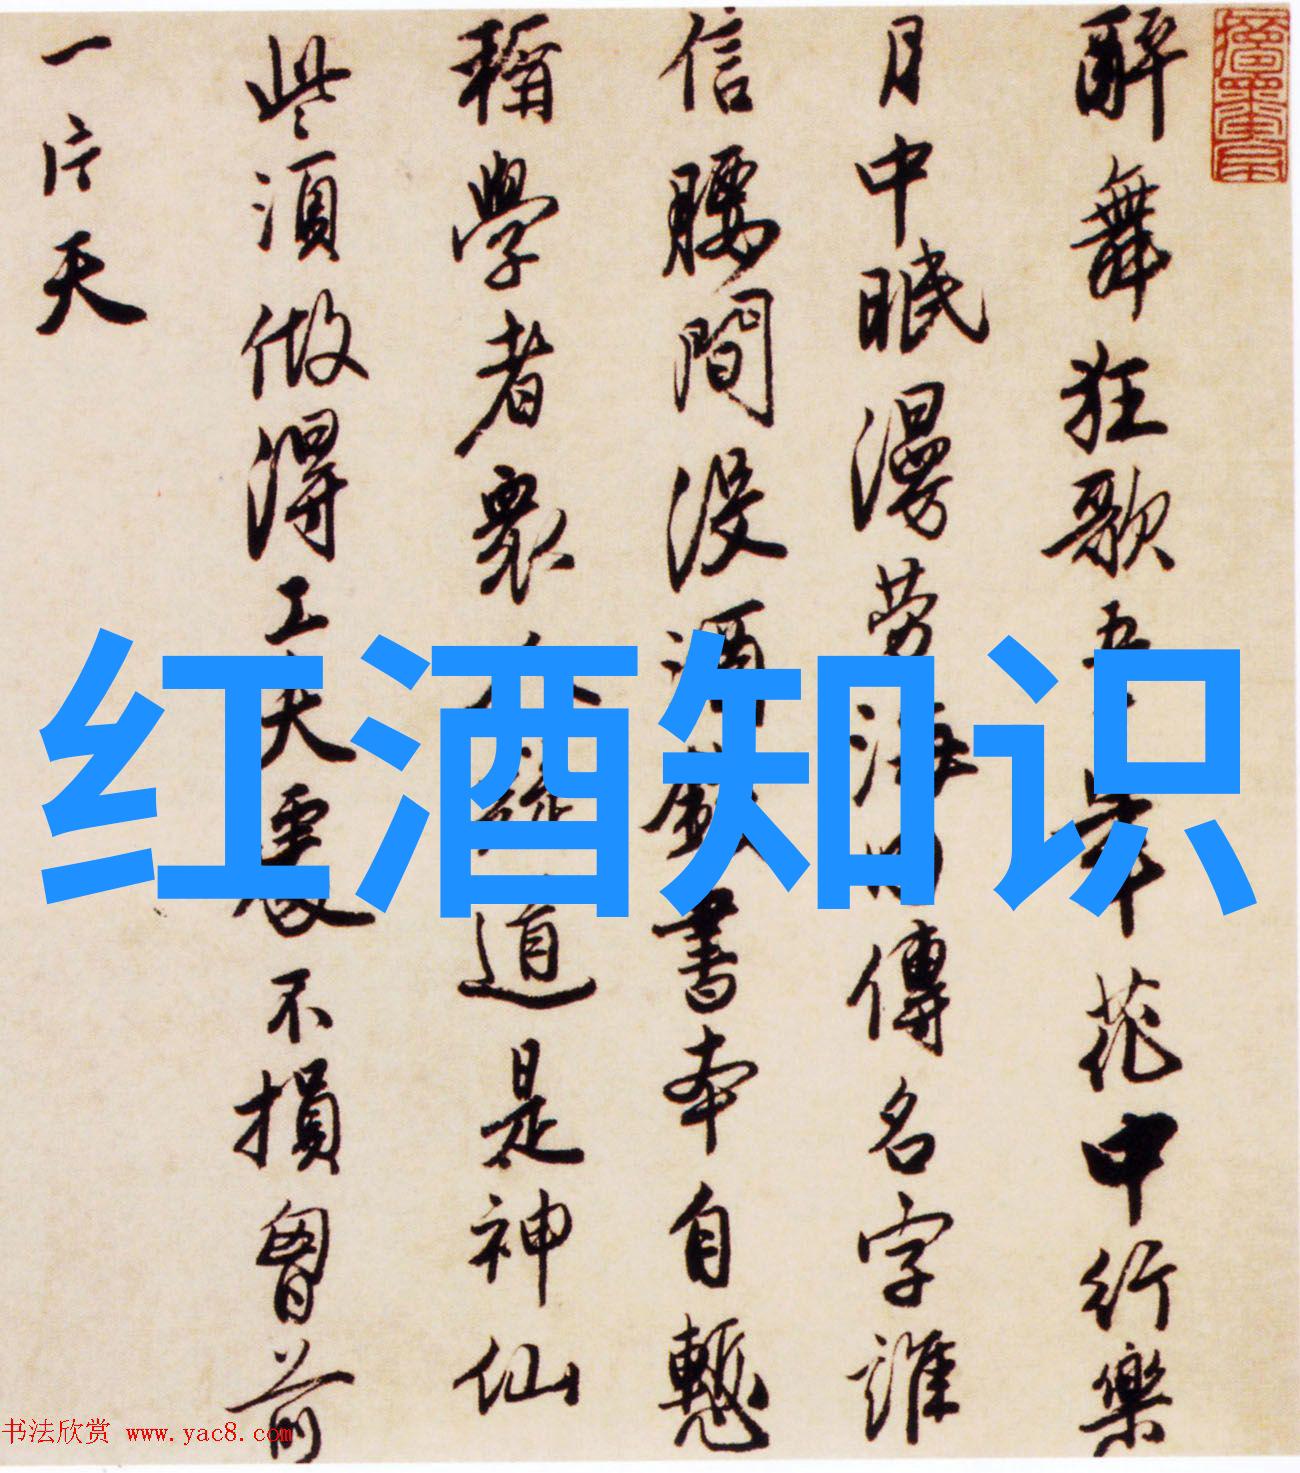 醉舞狂歌五十年花中行樂
月中眠漫劳海内傳名字誰
信腰間没酒錢書本自慙
稱學者衆人疑道是神仙
些須做得工夫處不損胷前
一片天
红酒知识
书法欣赏 www.yac8.com